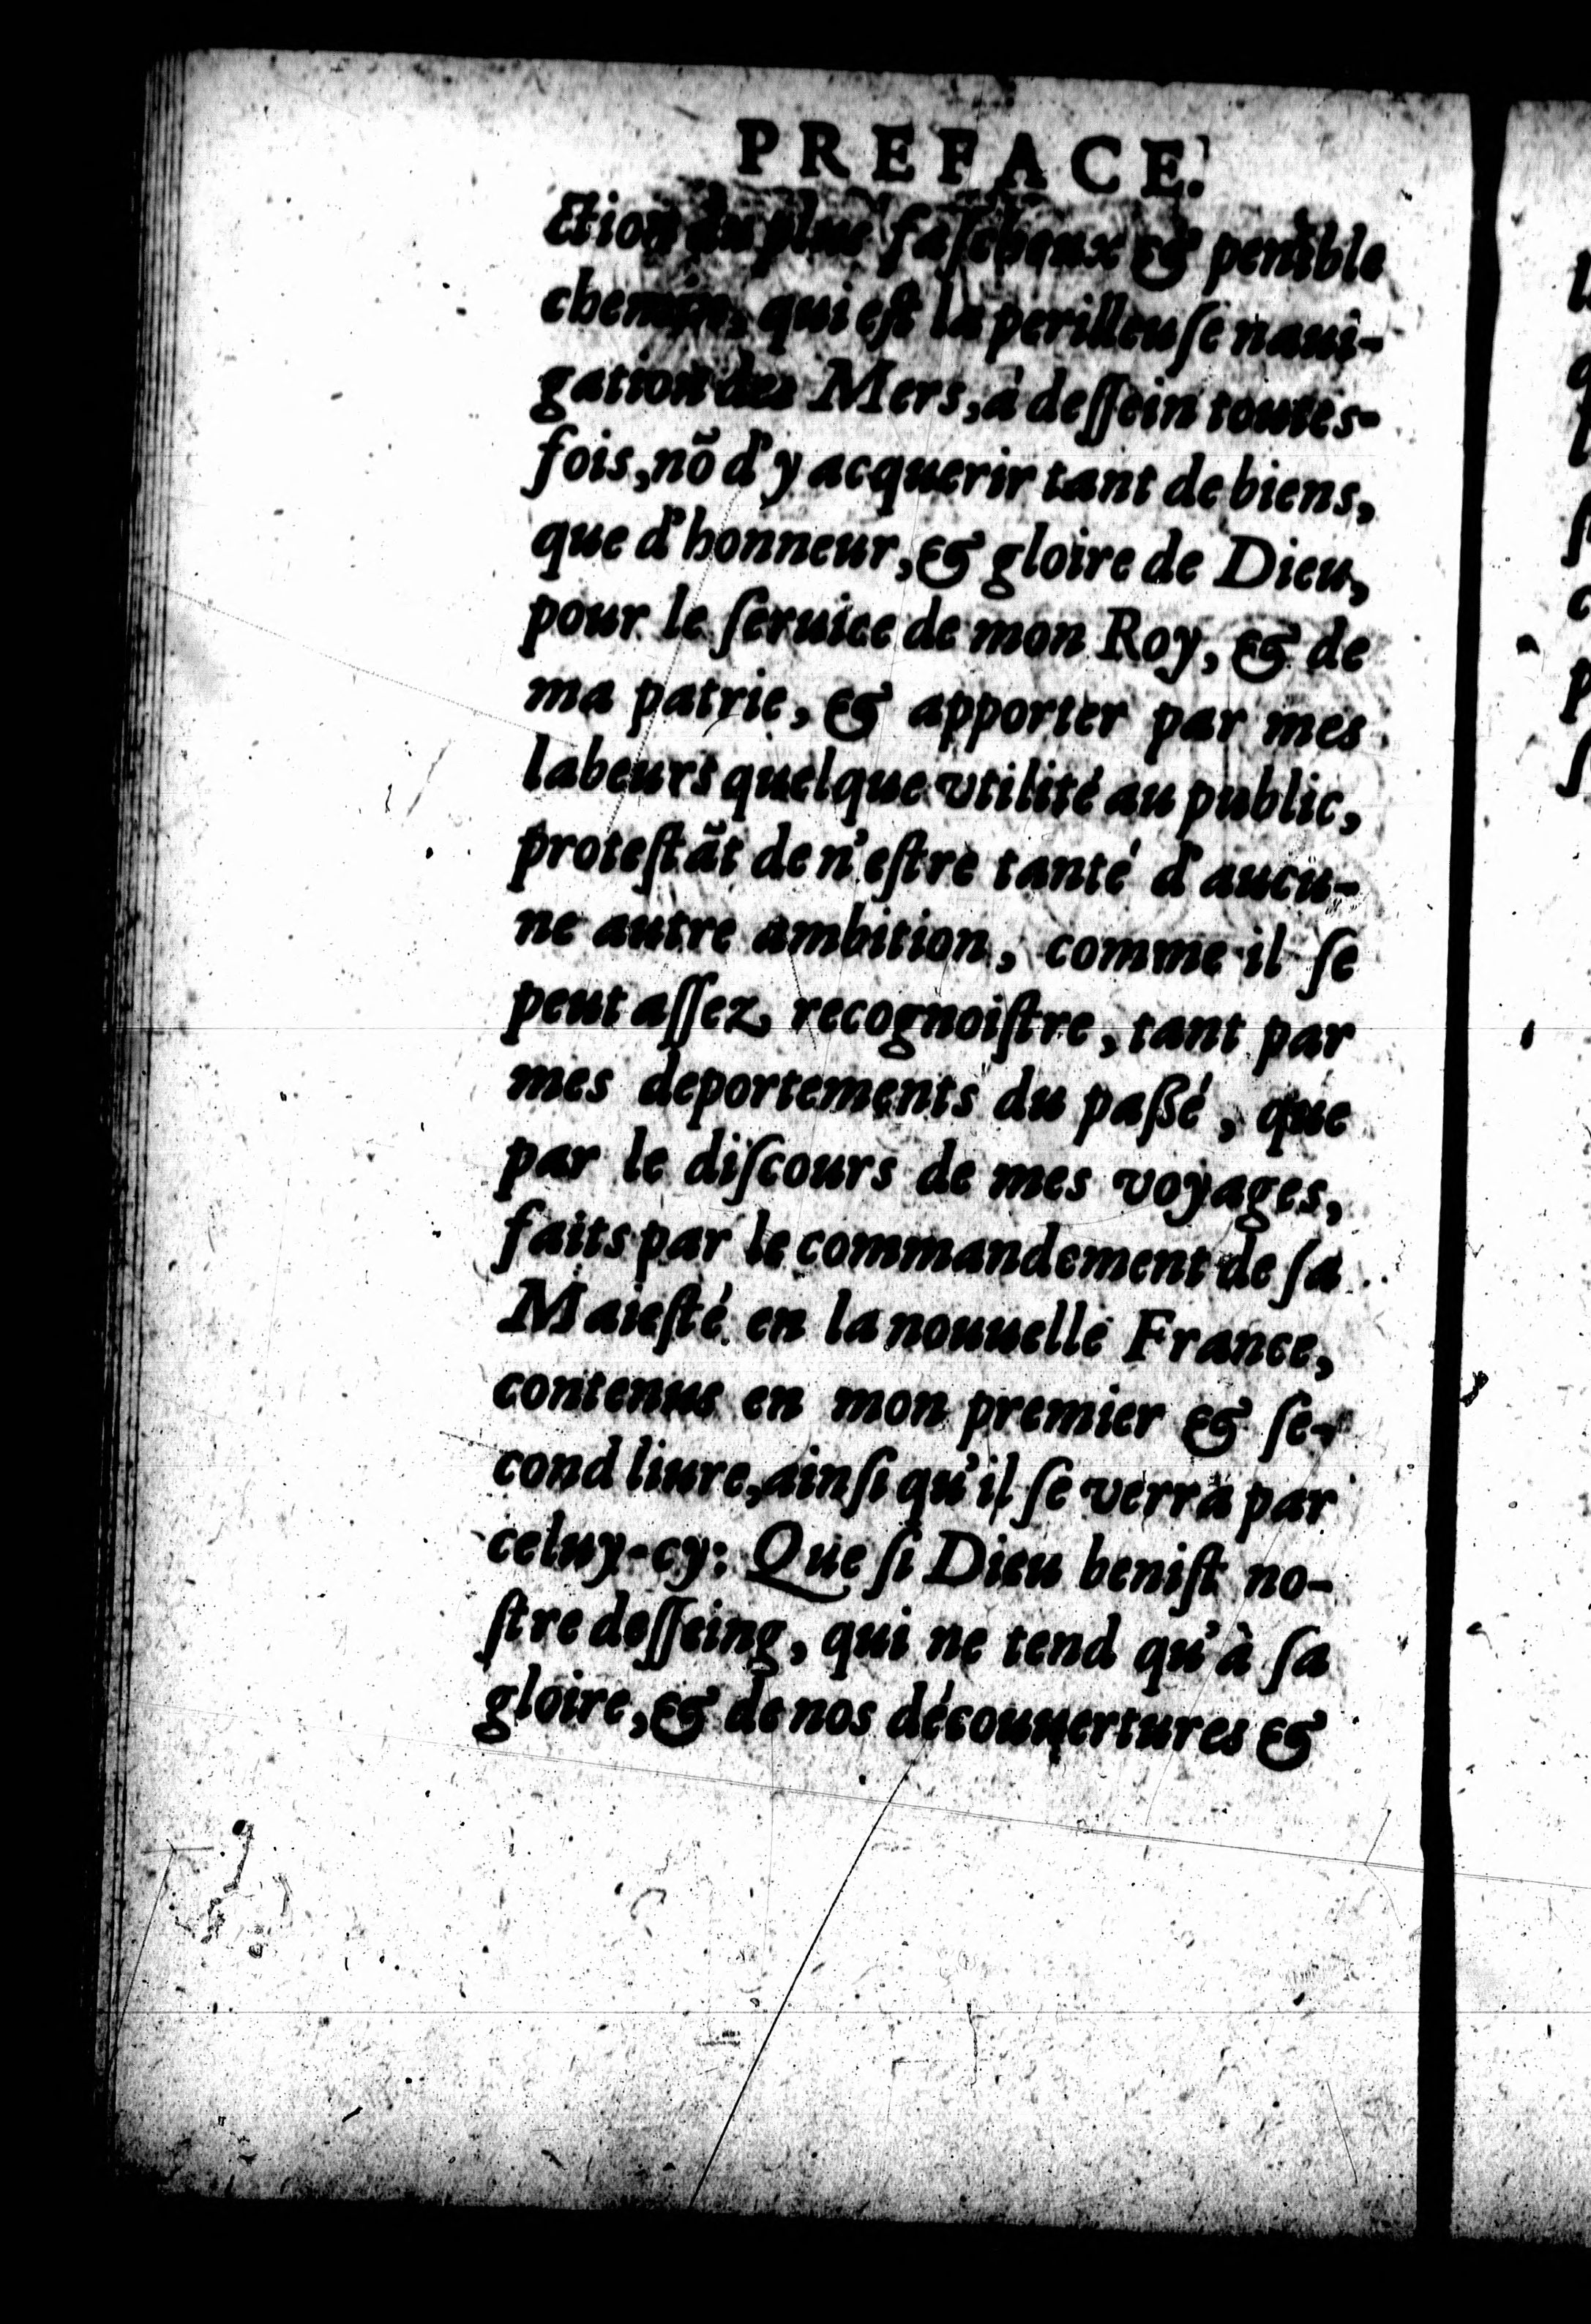 PREFACE.
ction du plus faſcheux & penible
chemin, qui eſt la perilleuſe naui-
gation des Mers, à deſſein toutes-
fois, nõ d'y acquerir tant de biens,
que d'honneur, & gloire de Dieu,
pour le ſeruice de mon Roy, & de
ma patrie, & apporter par mes
labeurs quelque vtilité au public,
proteſtãt de n'eſtre tanté d'aucu-
ne autre ambition, comme il ſe
peut aſſez recognoiſtre, tant par
mes deportements du paßé, que
par le diſcours de mes voyages,
faits par le commandement de ſa
Maieſté en la nouuelle France,
contenus en mon premier & ſe-
cond liure, ainſi qu'il ſe verra par
celuy-cy: Que ſi Dieu beniſt no-
ſtre deſſeing, qui ne tend qu'à ſa
gloire, & de nos découuertures &